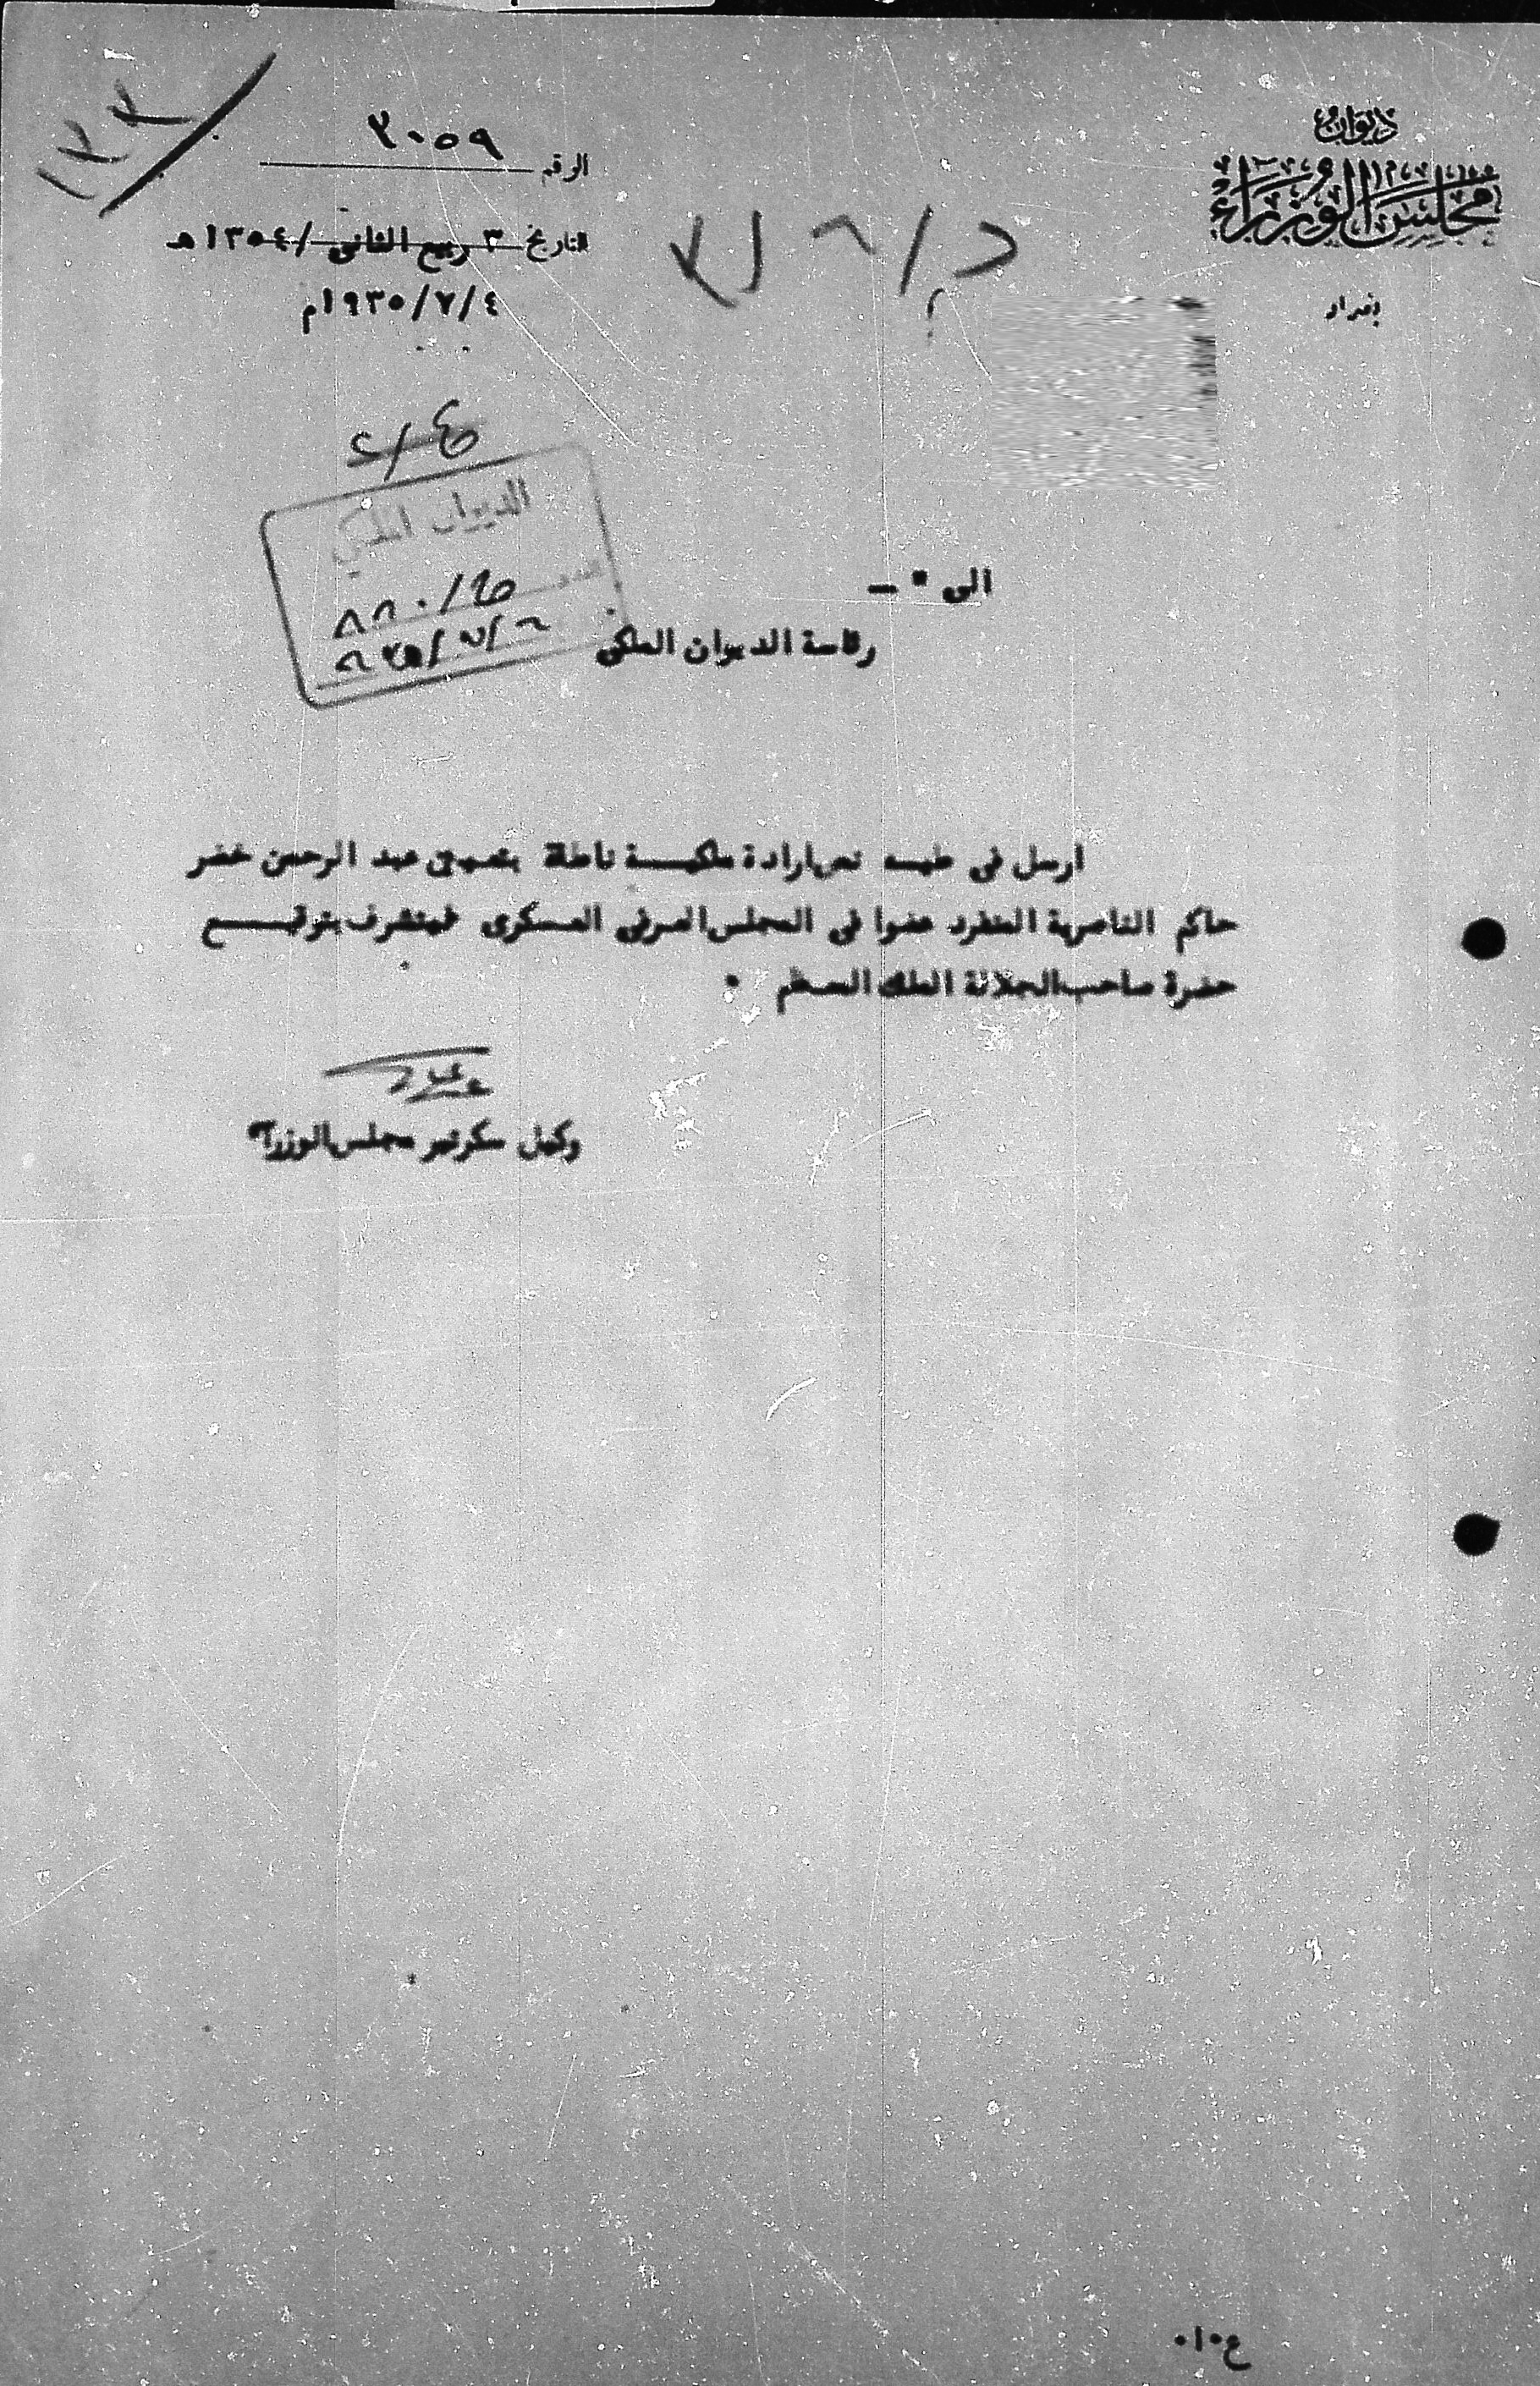 ديوان
مجلس الوزراء
بغداد
الرقم ٣٠٥٩
التاريخ ٣ ربيع الثاني /١٣٥٤هـ
١٩٣٥/٧/٤م
د/٦/٧
١٢٢
الديوان الملكي
الى ٠ ــ
رئاسة الديوان الملكي
ارسل في طيه نص ارادة ملكيـــة ناطقة بتعيين عبد الرحمن خضر
حاكم الناصرية المنفرد عضوا في المجلس العرفي العسكري فيتشرف بتوقيـــع
حضرة صاحب الجلالة الملك المعظم ٠
وكيل سكرتير مجلس الوزراء
ع٠ا٠